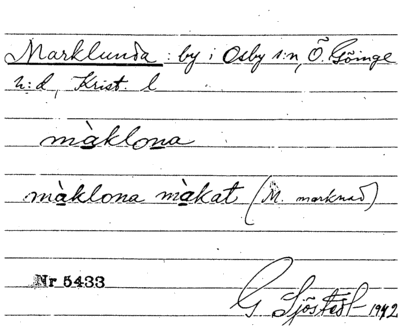 Marklunda : by i Osby s:n, Ö. Göinge
h:d, Krist. l
màklona
màklona màkat (M. marknad)
Nr 5433
G. Sjöstedt 1942